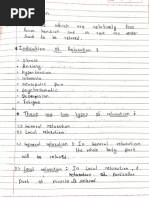 which are relatively free
from tension and at rest one order
had to be relaxed.
* Indication of Relaxation :
- Stress
- Anxiety
- Hypertension
- Insomnia
- Pain
- Psychosomatic
- Depression
- Fatigue
* There are two types of relaxation :
1) General relaxation
2) Local relaxation.
1) General relaxation : In General relaxation
the whole body part
will be relaxed.
2) Local relaxation : In Local relaxation,
particular
part of muscle is relaxed.